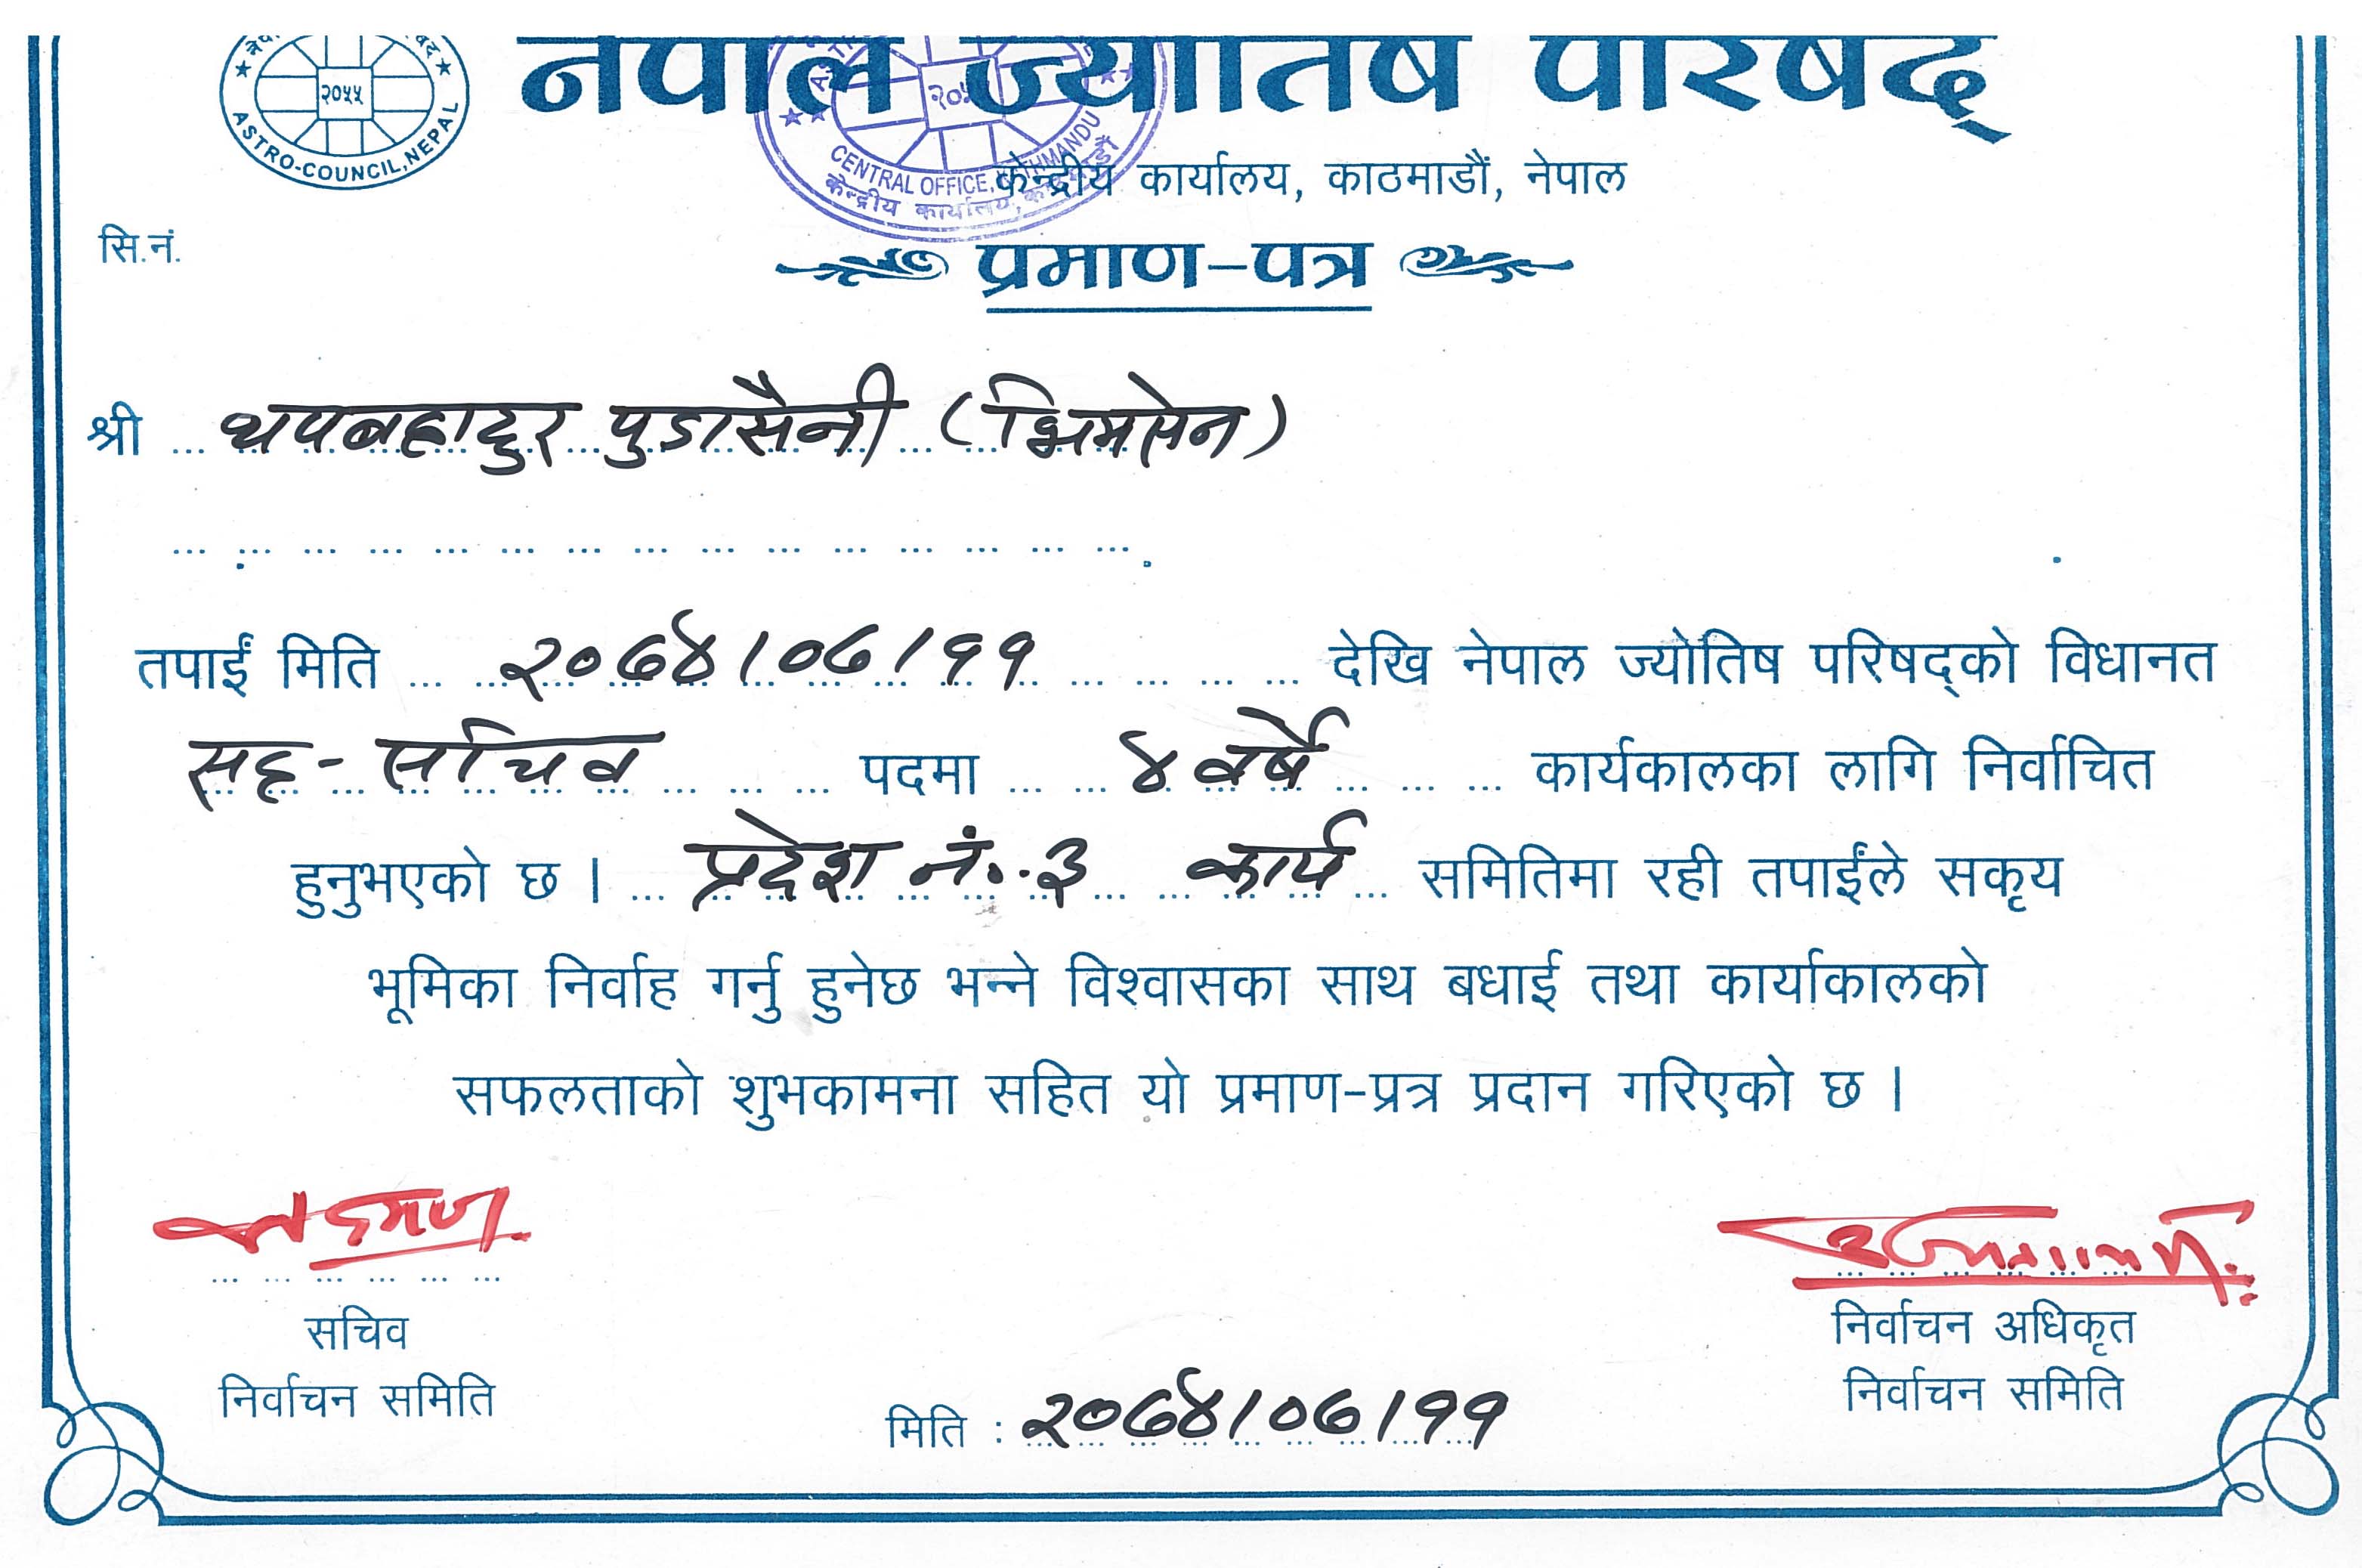 नेपाल ज्योतिष परिषद्
२०५५
ASTRO-COUNCIL, NEPAL
CENTRAL OFFICE, KATHMANDU
केन्द्रीय कार्यालय,
केन्द्रीय कार्यालय, काठमाडौं, नेपाल
सि.नं.
प्रमाण-पत्र
श्री थपबहादुर पुडासैनी (भिमसेन)
तपाईं मिति २०७४/०७/११ देखि नेपाल ज्योतिष परिषद्को विधानत
सह-सचिव पदमा ४ वर्षे कार्यकालका लागि निर्वाचित
हुनुभएको छ । प्रदेश नं. ३ कार्य समितिमा रही तपाईंले सकृय
भूमिका निर्वाह गर्नु हुनेछ भन्ने विश्वासका साथ बधाई तथा कार्याकालको
सफलताको शुभकामना सहित यो प्रमाण-प्रत्र प्रदान गरिएको छ ।
सचिव
निर्वाचन समिति
निर्वाचन अधिकृत
निर्वाचन समिति
मिति : २०७४/०७/११